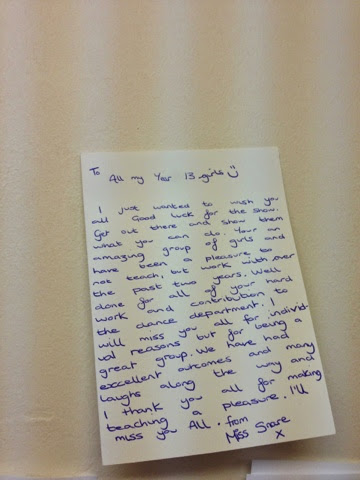 To All my Year 13 girls
I just wanted to wish you
all Good luck for the show.
Get out there and show them
what you can do. Your an
amazing group of girls and
have been a pleasure to
not teach, but work with over
the past two years. Well
done for all of your hard
work and contribution to
the dance department. I
will miss you all for individ
ual reasons but for being a
great group. We have had
excellent outcomes and many
laughs along the way and
I thank you all for making
teaching a pleasure. I'll
miss you All. from
Miss Snare
x